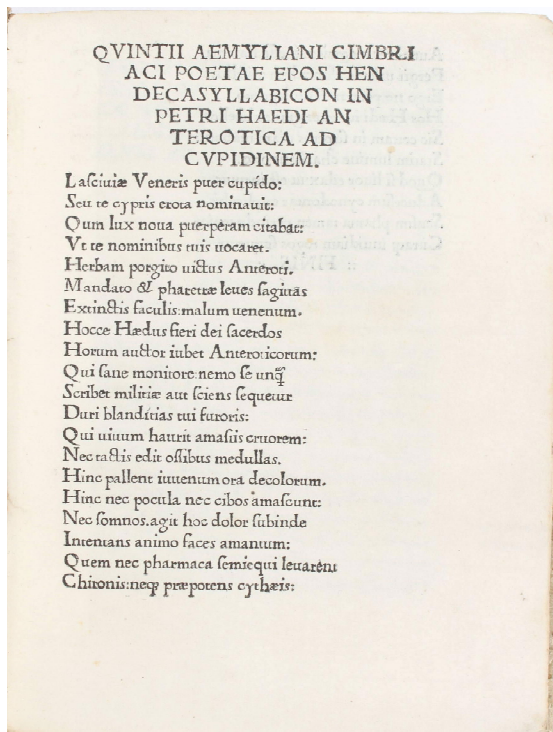 QVINTII AEMYLIANI CIMBRI
ACI POETAE EPOS HEN
DECASYLLABICON IN
PETRI HAEDI AN
TEROTICA AD
CVPIDINEM.
Lasciuiæ Veneris puer cupido:
Seu te cypris erota nominauit:
Qum lux noua puerperam citabat:
Vt te nominibus tuis uocaret.
Herbam porgito uictus Anteroti.
Mandato & pharetræ leues sagittas
Extinctis faculis: malum uenenum.
Hocce Hædus fieri dei sacerdos
Horum auctor iubet Anteroticorum:
Qui sane monitore: nemo se unq̃
Scribet militiæ aut sciens sequetur
Duri blanditias tui furoris:
Qui uiuum haurit amasiis cruorem:
Nec tactis edit ossibus medullas.
Hinc pallent iuuenum ora decolorum.
Hinc nec pocula nec cibos amascunt:
Nec somnos. agit hoc dolor subinde
Intentans animo faces amantum:
Quem nec pharmaca semiequi leuarent
Chironis: neq; præpotens cythæis: